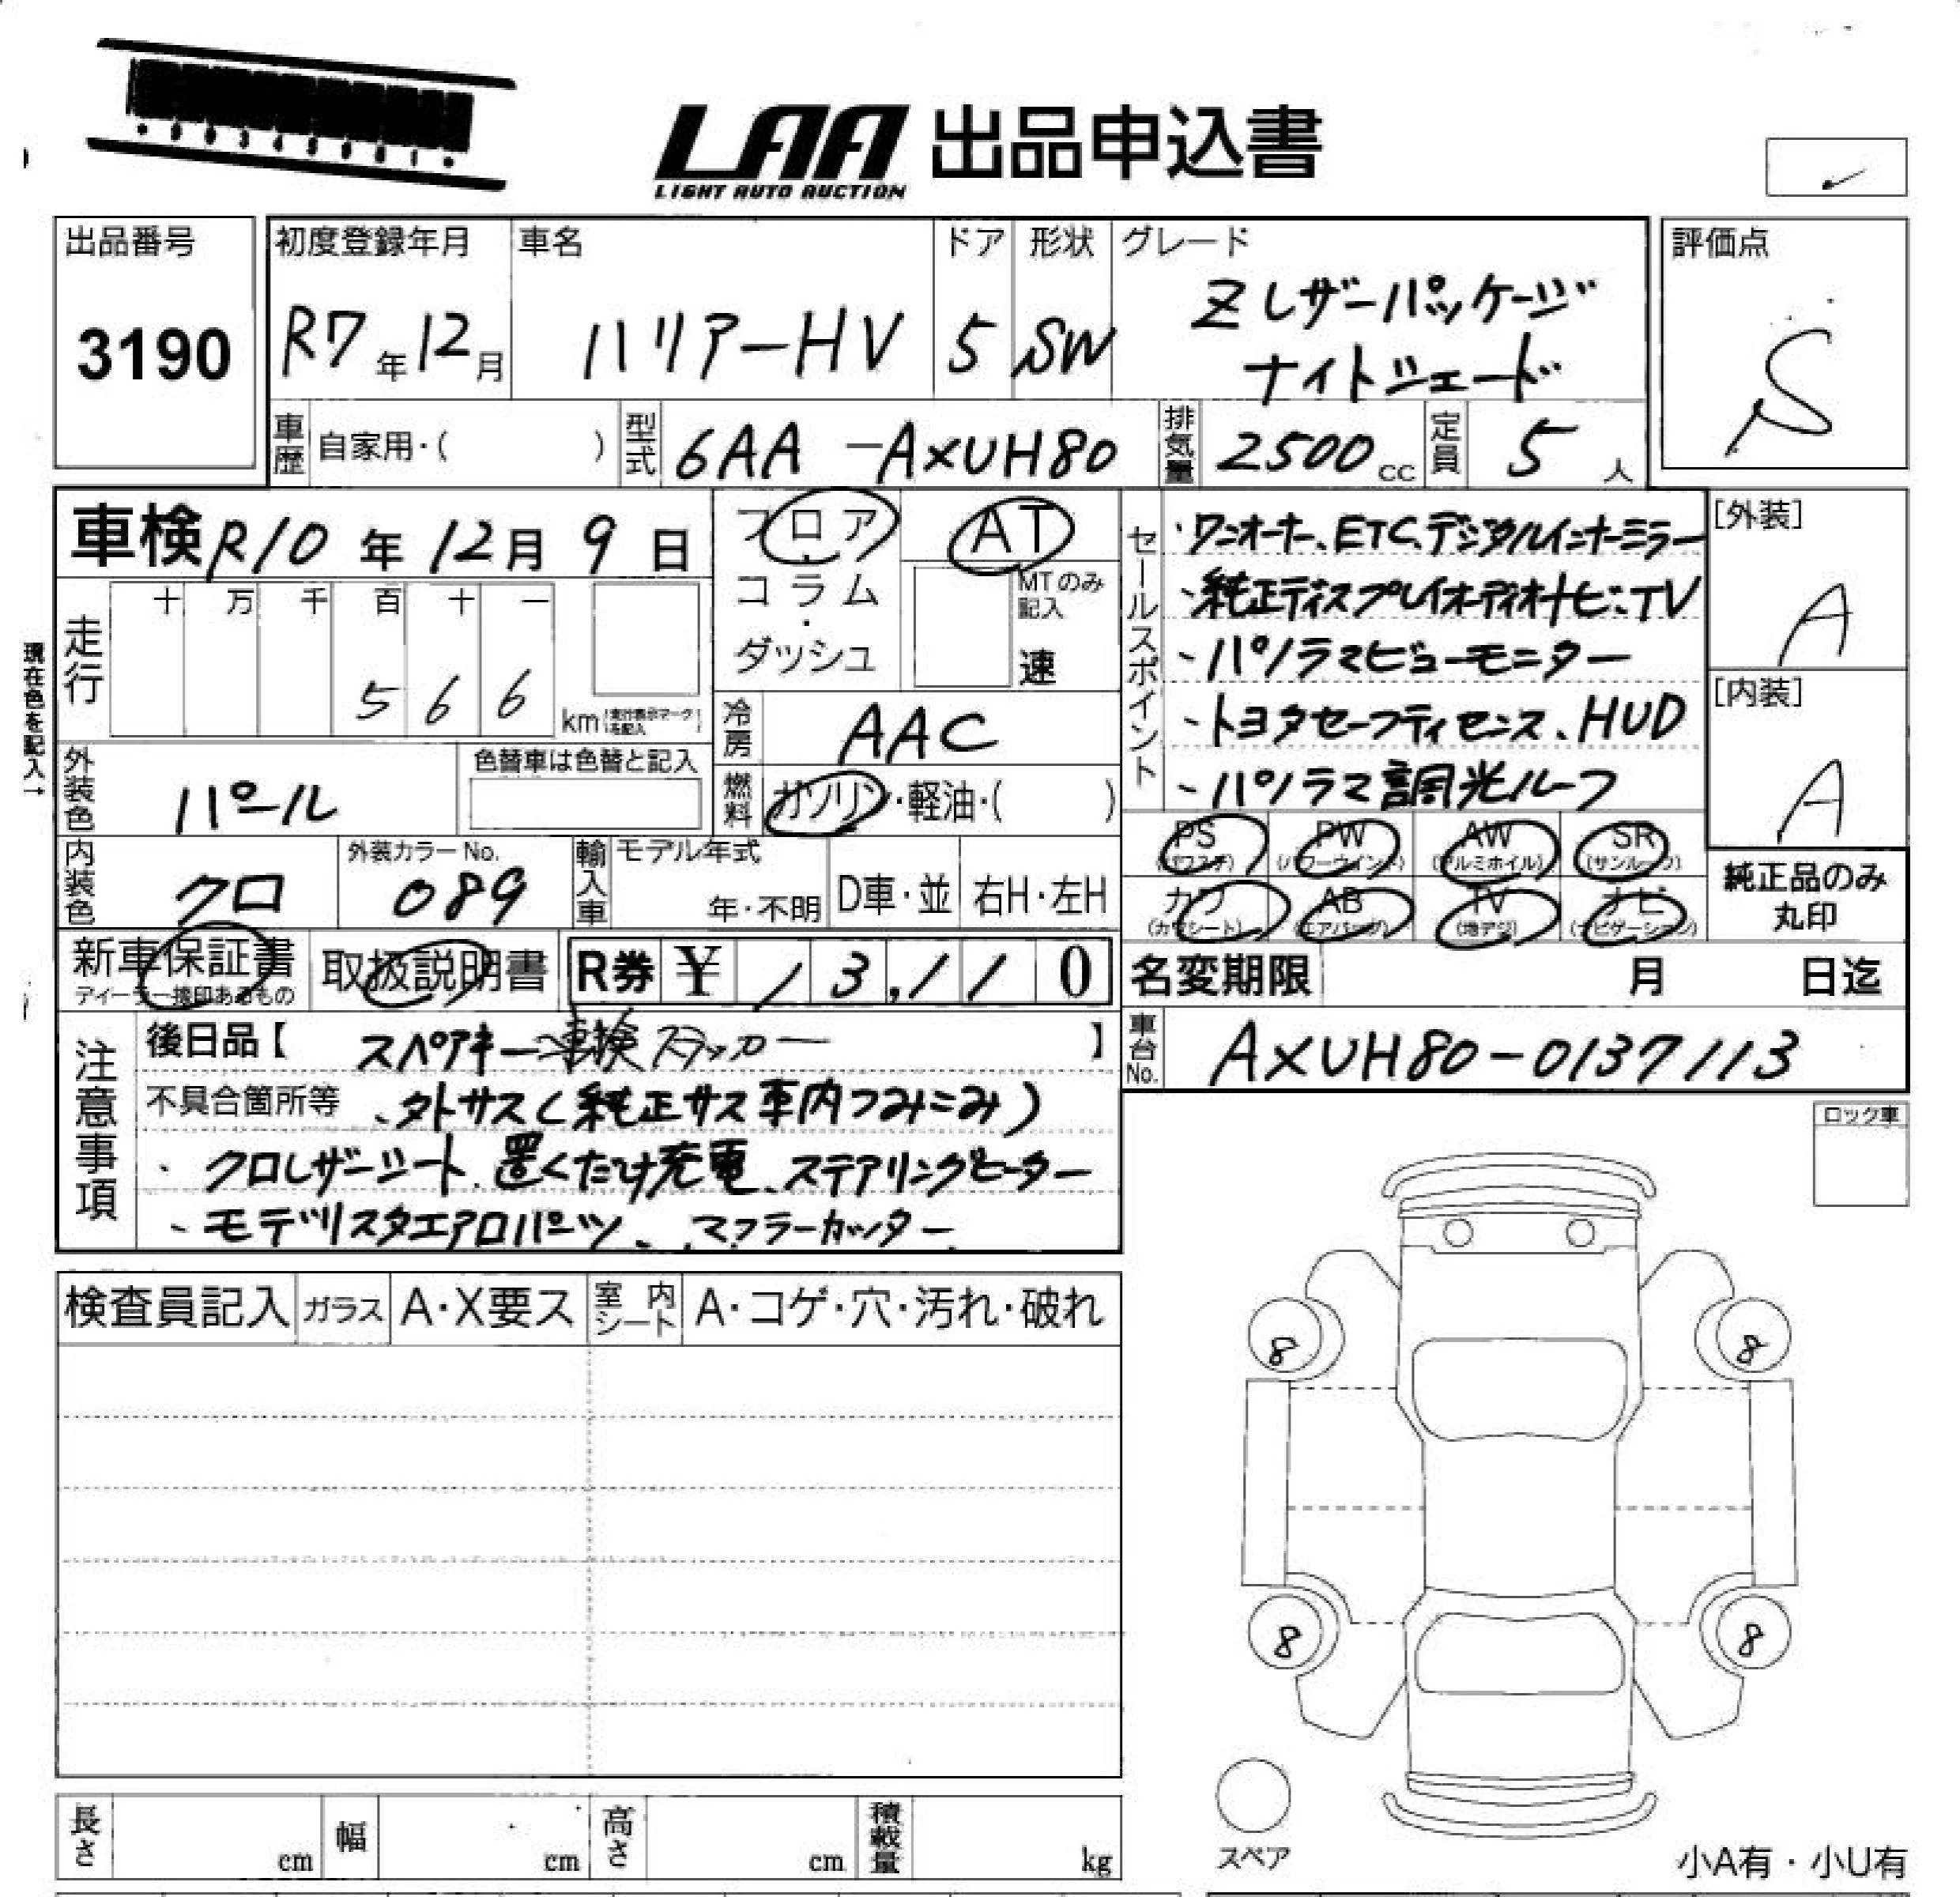 LAA 出品申込書
LIGHT AUTO AUCTION
出品番号
3190
初度登録年月
R7年12月
車名
ハリアーHV
ドア
5
形状
SW
グレード
Zレザーパッケージ
ナイトシェード
評価点
S
車歴
自家用・( )
型式
6AA-AXUH80
排気量
2500cc
定員
5人
車検 R10年12月9日
フロア・コラム・ダッシュ
AT
MTのみ記入
速
走行
十 万 千 百 十 一
5 6 6
km
現在色を記入↑
冷房
AAC
燃料
ガソリン・軽油・( )
セールスポイント
・ワンオーナー、ETC、デジタルインナーミラー
・純正ディスプレイオーディオナビ、TV
・パノラマビューモニター
・トヨタセーフティセンス、HUD
・パノラマ調光ルーフ
[外装]
A
[内装]
A
外装色
パール
色替車は色替と記入
内装色
クロ
外装カラーNo.
089
輸入車
モデル年式
年・不明
D車・並
右H・左H
PS
(パワステ)
PW
(パワーウインド)
AW
(アルミホイル)
SR
(サンルーフ)
カワ
(カワシート)
AB
(エアバッグ)
TV
(地デジ)
ナビ
(ナビゲーション)
純正品のみ
丸印
新車保証書
ディーラー捺印あるもの
取扱説明書
R券 ¥ 13,110
名変期限 月 日迄
車台No.
AXUH80-0137113
注意事項
後日品【 スペアキー 車検ステッカー 】
不具合箇所等
、外サス(純正サス車内つみこみ)
・クロレザーシート、置くだけ充電、ステアリングヒーター
、モデリスタエアロパーツ、マフラーカッター
ロック車
検査員記入
ガラス
A・X要ス
室内シート
A・コゲ・穴・汚れ・破れ
8
8
8
8
スペア
小A有・小U有
長さ
cm
幅
cm
高さ
cm
積載量
kg